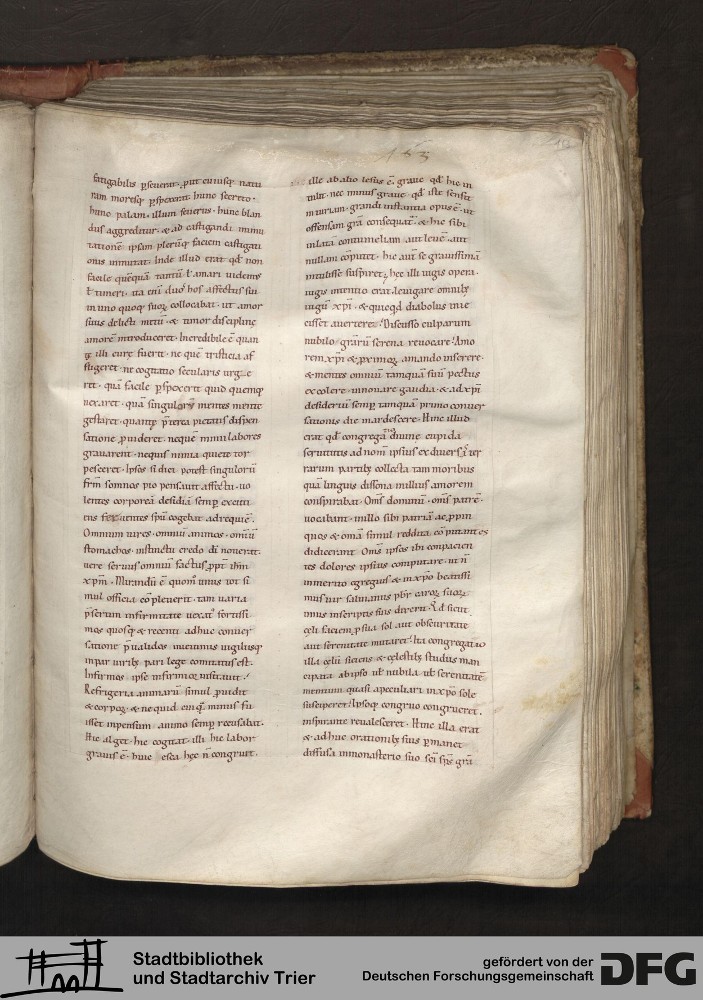 153
fatigabilis pseverat. put cuiusq; natu
ram moresq; pspexerat. hunc secreto.
hunc palam. illum severus. hunc blan
dus aggreditur. & ad castigandi inmu
tatione ipsam pleruq; faciem castigati
onis inmutat. Inde illud erat qd non
facile quequa tantu t amari videntes
t timeri. ita eni duos hos affectus sui
in uno quoq; suoꝝ collocabat. ut amor
suus delicti metu. & timor discipline
amore introduceret. Incredibile e quan
illi cure fuerit. ne que tristicia af
fligeret. ne cogitatio secularis urgere
ret. qua facile pspexerit quid quemq;
vexaret. qua singuloꝝ mentes mente
gestaret. quante pterea pietatis dispen
satione puideret. neque nimii labores
gravarent. nequis nimia quiete tor
pesceret. Ipsos si dici potest singuloru
frm somnos pio pensavit affectu. vo
lentes corporea desidia semp excita
utentes spu cogebat ad requie.
Omnium vires. omniu animos. omiu
stomachos. instinctu credo di noverat.
vere servus omniu factus ppt ihm
xpm. Mirandu e quom unus tot si
mul officia copleverit. tam varia
psertim infirmitate vexat fortissi
mos quosq; & recenti adhuc conver
satione pualidos. ieiuniis vigiliisq;
impar virib; pari lege comitatus est.
Infirmos ipse infirmior visitavit.
Refrigeria animaru simul puidit
& corpoꝝ. & ne quid cuiq; minus fu
isset inpensum. animo semp recusabat.
Hic alget. hic cogitat. illi hic labor
gravis e. huic esca hec n congruit.
ille ab alio lesus e. grave qd hic in
tulit. nec minus grave qd iste sensit
iniuriam. grandi instantia opus e. ut
offensam gra consequat. & hic sibi
inlata contumeliam aut leve. aut
nullam coputet. hic aut se gravissima
intulisse suspiret. hec illi iugis opera.
iugis intentio erat. levigare omnib;
iugu xpi. & quicqd diabolus inie
cisset avertere. Discusso culparum
nubilo gratiaru serena revocare. Amo
rem xpi & pximoꝝ. amando inserere.
& mentes omniu tamqua suu pectus
excolere. innovare gaudia. & ad xpi
desideriu semp tamqua primo conver
sationis die inardescere. Hinc illud
erat qd congrega divine cupida
servitutis ad nom ipsius ex diversis ter
rarum partib; collecta tam moribus
qua linguis dissona in illius amorem
conspirabat. Oms dominu. oms patre.
vocabant. in illo sibi patria ac ppin
quos & oma simul reddita coputantes
didicerant. Oms ipsos ibi conpacien
tes dolores ipsius computare. ut n
inmerito egregius & in xpo beatissi
mus vir salvianus pbr caroꝝ suoꝝ
unus inscriptis suis dixerit. Qd sicut
celi faciem p sua sol aut obscuritate
aut serenitate mutaret. ita congregatio
illa celu sitiens & celestib; studiis man
cipata ab ipso ut nubila ut serenitate
mentium quasi a peculiari in xpo sole
susciperet. Ipsoq; congruo congrueret.
inspirante revalesceret. Hinc illa erat
& adhuc orationib; suis pmanet
diffusa in monasterio suo sci sps gra
Stadtbibliothek
und Stadtarchiv Trier
gefördert von der
Deutschen Forschungsgemeinschaft
DFG